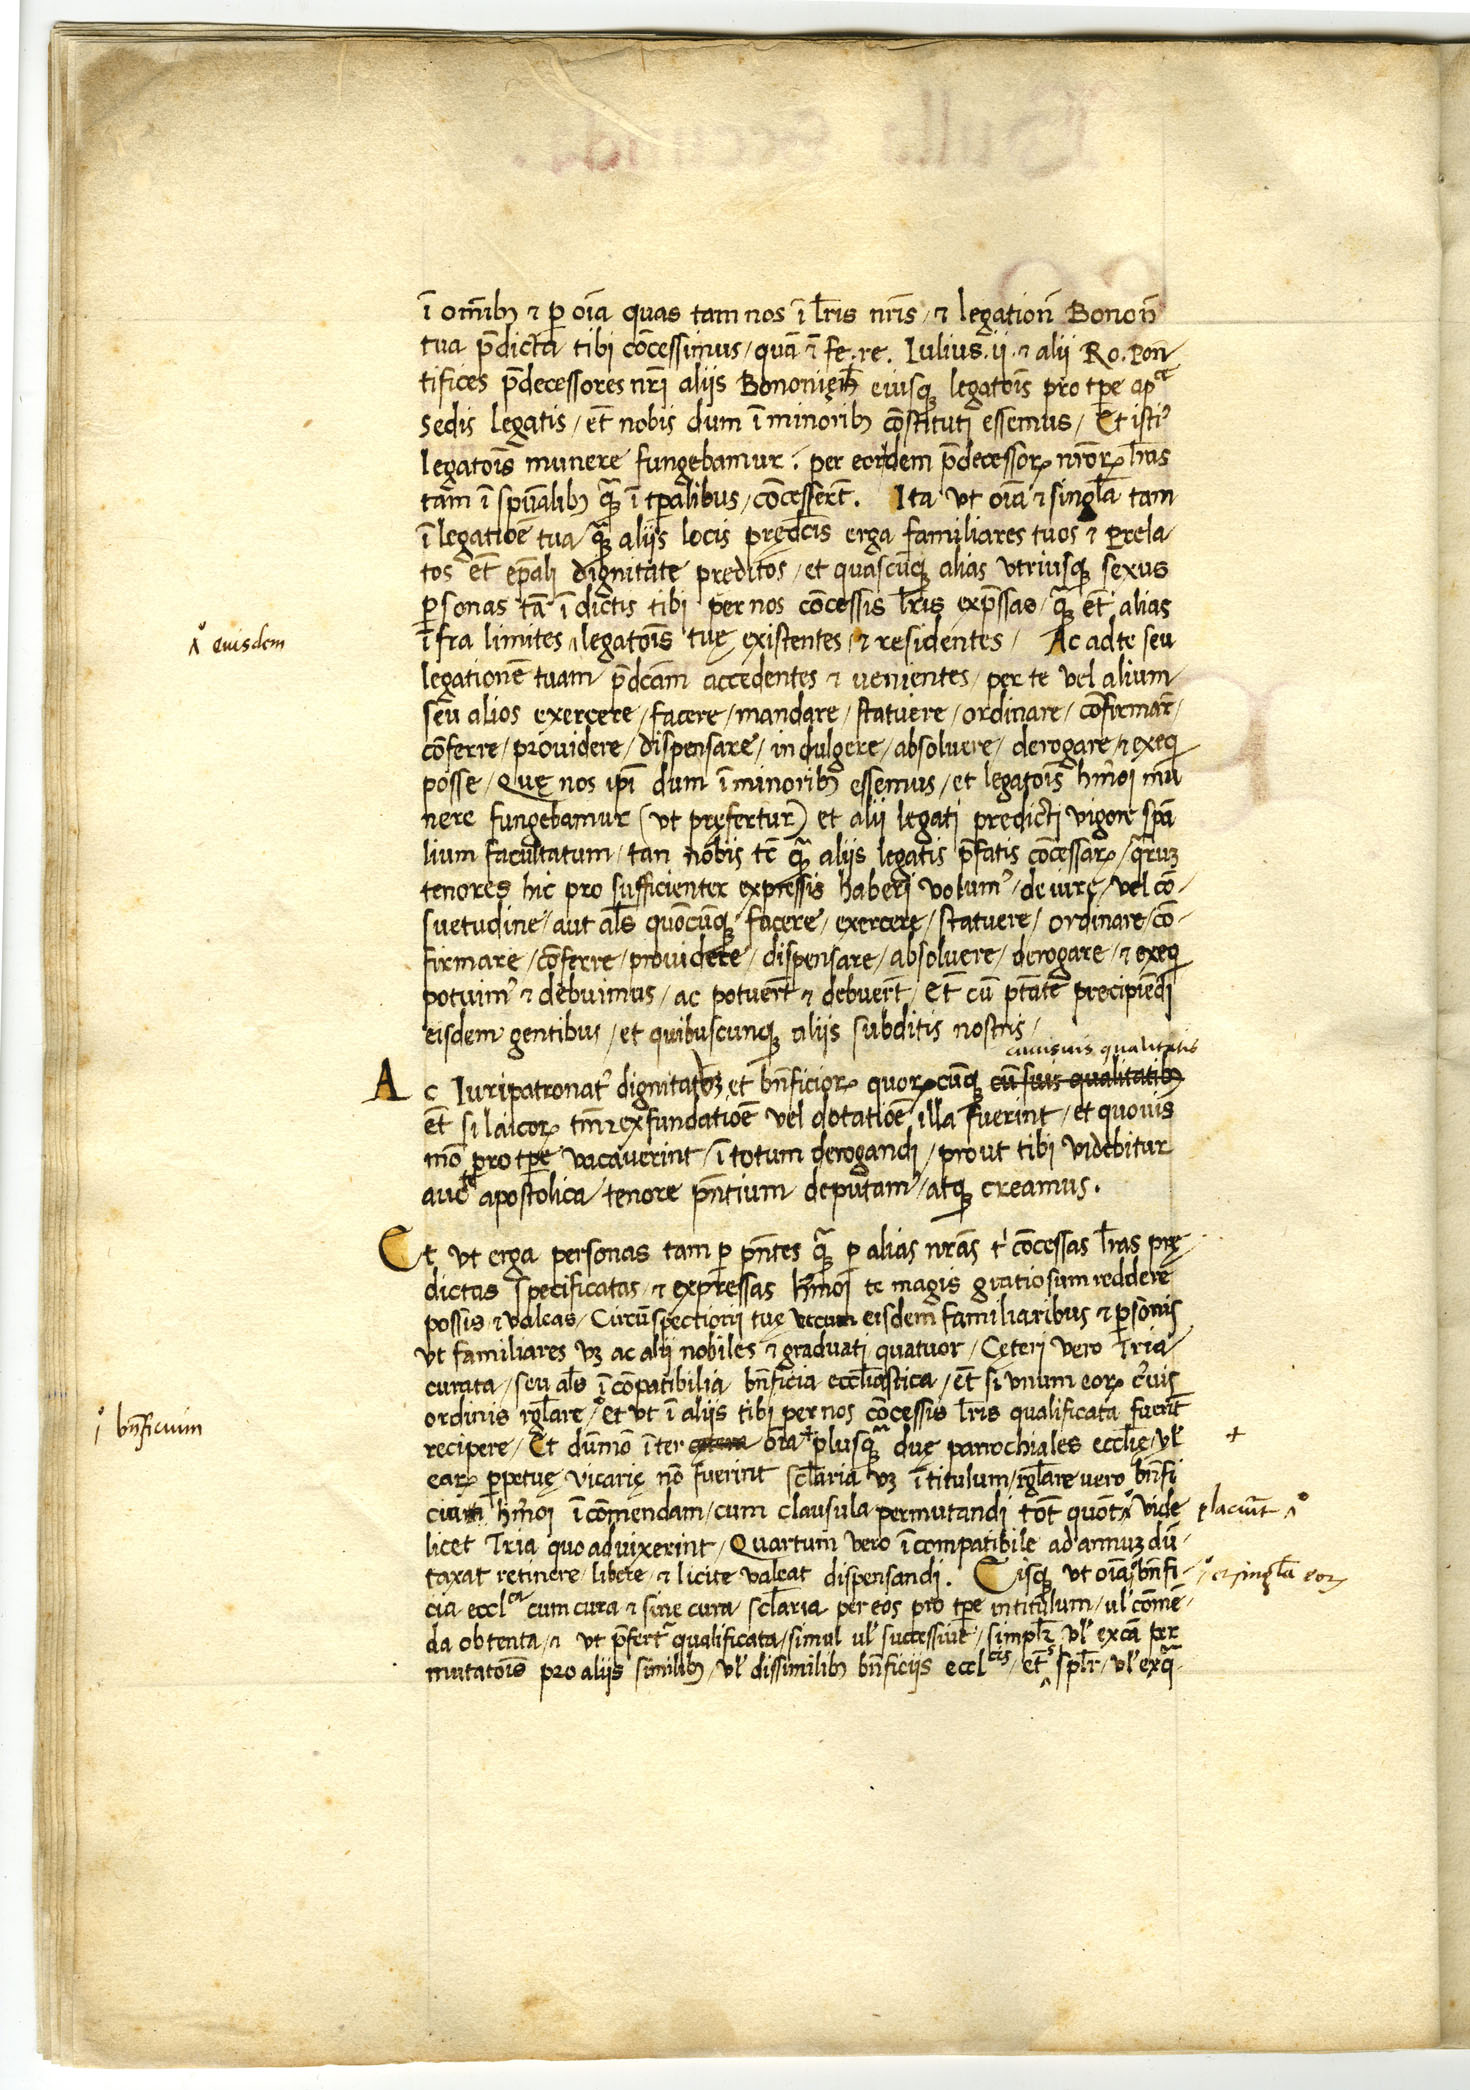 ī om̄ib₉ ⁊ ꝑ oīa quas tam nos ī lr̄is nr̄is / ⁊ legation̄ Bonon̄
tua p̄dicta tibi cōcessimus / quā ⁊ fe . re . Iulius . ii . ⁊ alii Ro . Pon
tifices p̄decessores nr̄i aliis eiusqꝫ legatōis pro tpe
Sedis legatis / et̄ nobis dum ī minorib₉ cōstituti essemus / Et isti⁹
legatōis munere fungebamur . per eordem p̄decessorꝝ nr̄orꝝ lr̄as
tam ī spūalib₉ qꝫ̄ ī tp̄alibus / cōcesser̄t . Ita vt oīa ⁊ singl̄a tam
ī legatiōe tua / qꝫ̄ aliis locis pręd̄cis erga familiares tuos ⁊ Prela
tos et̄ ep̄ali dignitate preditos / et quascūqꝫ alias vtriusqꝫ sexus
ꝑsonas tā ī dictis tibi per nos cōcessis lr̄is exp̄ssas / qꝫ̄ et̄ alias
ī fra limites ‸ legatōis tuę existentes / ⁊ residentes / Ac ad te seu
x° euisdem
legationē tuam p̄dcām accedentes ⁊ uenientes / per te vel alium
seu alios exercere / facere / mandare / statuere / ordinare / cōfirmar̄ /
cōferre / prouidere / dispensare / indulgere / absoluere / derogare / ⁊ exeq
posse / Quę nos ip̄i dum ī minorib₉ essemus / et legatōis hm̄oi mu
nere fungebamur (vt pręfertur) et alii legati predicti vigore sp̄a
lium facultatum / tan nobis tc̄ qꝫ̄ aliis legatis p̄fatis cōcessarꝝ / qr̄uꝫ
tenores hic pro sufficienter expressis haberi volum⁹ / de iure / vel cō-
suetudine / aut al̄s quōcūqꝫ facere / exercere / statuere / ordinare / cō-
firmare / cōferre / prouidere / dispensare / absoluere / derogare / ⁊ exeq
potuim⁹ ⁊ debuimus / ac potuer̄t ⁊ debuer̄t / Et̄ cū ptāte precipiēdi
eisdem gentibus / et quibuscunqꝫ aliis subditis nostris /
cuiusuis qualitatis
Ac Iuripatronat⁹ dignitatuꝫ et bn̄ficiorꝝ quorꝝcūqꝫ cū suis qualitatib₉
et̄ si laicorꝝ tm̄ ⁊ ex fundatiōe vel dotatiōe illa fuerint / et quouis
mō pro tpe vacauerint / ī totum derogandi / prout tibi videbitur
auc̄te apostolica / tenore pn̄tium deputam⁹ / atqꝫ creamus .
Et vt erga personas tam ꝑ pn̄tes qꝫ̄ ꝑ alias nr̄as tⁱ cōcessas lr̄as prę
dictas specificatas / ⁊ expressas hm̄oi te magis gratiosum reddere
possis ⁊ valeas / Circūspectionii tuę vt cum eisdem familiaribus ⁊ ꝑsonis
vt familiares vꝫ ac alii nobiles ⁊ graduati quatuor / Cęteri vero Tria
curata / seu al̄s ī cōpatibilia bn̄ficia ecclīastica / et̄ si vnum eorꝝ c̄uis
ordinis rgl̄are / et vt ī aliis tibi per nos cōcessis lr̄is qualificata fuer̄t
i° bn̄ficium
recipere / Et dūmō īter cetera oīa + plusqꝫ̄ duę parrochiales ecclīę / vl̄
+
earꝝ ꝑpetuę vicarię nō fuerint scl̄aria vꝫ ī titulum / rgl̄are vero bn̄fi
cium hm̄oi ī cōmendam / cum clausula permutandi tot̄ quot̄ x° vide
placuīt x°
licet Tria quo aduixerint / Quartum vero ī compatibile ad annuꝫ dū-
taxat retinere / libere / ⁊ licite valeat dispensandi . Eisqꝫ vt oīa ° bn̄fi-
° et singl̄a eoꝝ
cia eccl̄ca cum cura ⁊ sine cura / scl̄aria per eos pro tpe in titulum / vl̄ cōmē-
da obtenta / ⁊ vt p̄fert⁹ qualificata / simul vl̄ successiue / simpl̄r vl̄ excā per
mutatōis pro aliis similib₉ / vl̄ dissimilib₉ bn̄ficiis eccl̄cis / et̄ ‸ spl̄r / vl̄ ex qꝫ̄-